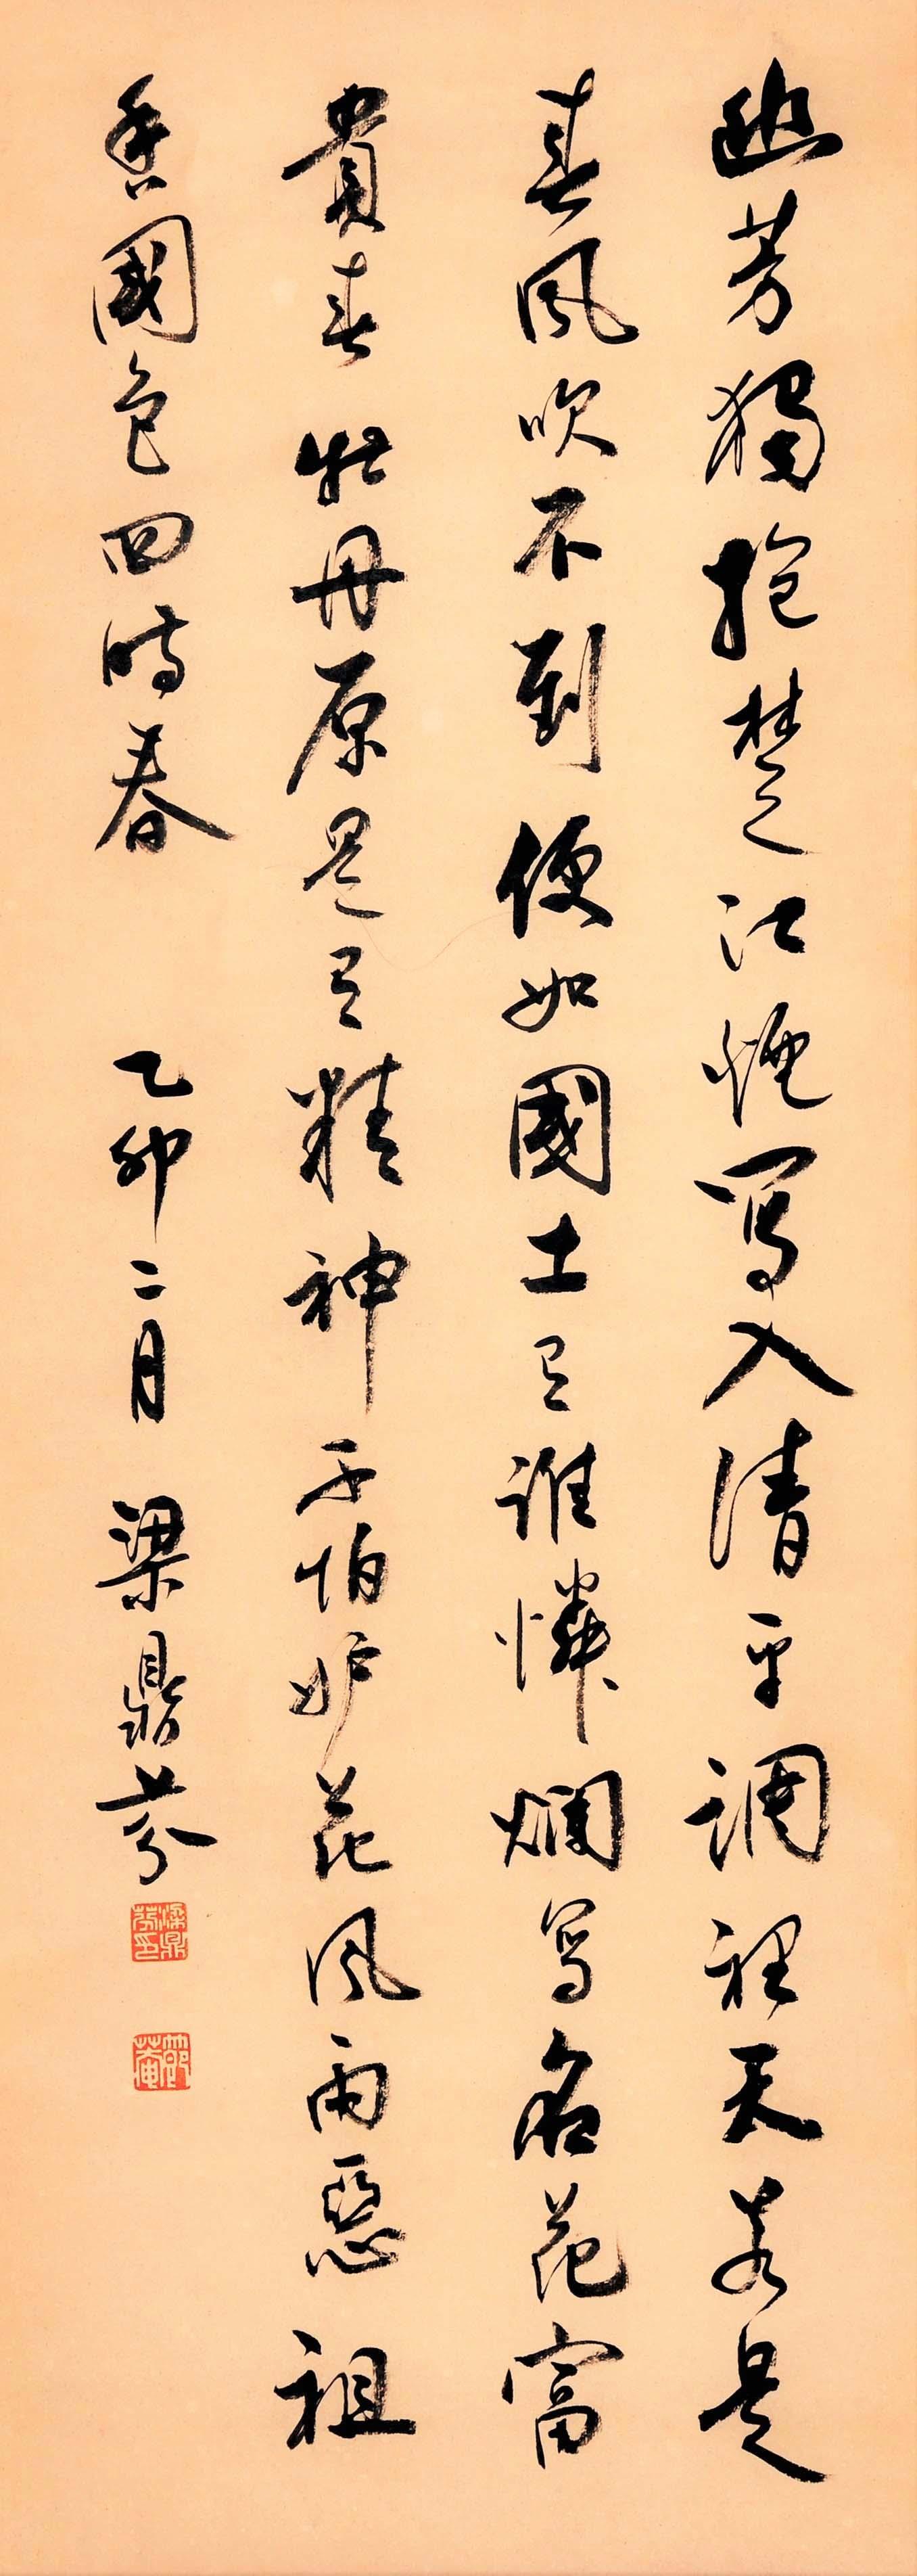 幽芳獨抱楚江煙寫入清平調裡天若是
春風吹不到便如國士有誰憐爛寫名花富
貴春 牡丹原是有精神不怕妒花風雨惡祖
香國色四時春 乙卯二月 梁鼎芬
梁鼎芬印
節菴